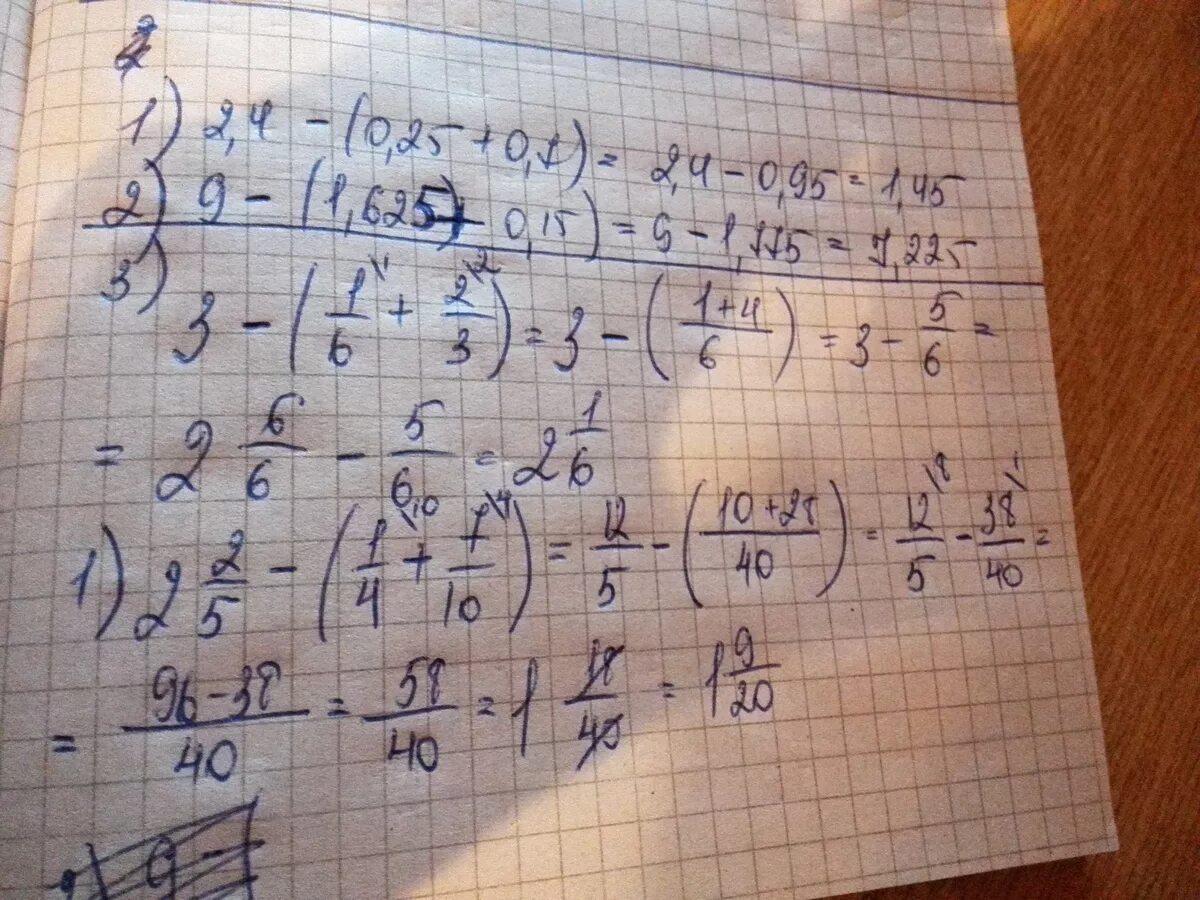 2
1) 2,4 - (0,25 + 0,7) = 2,4 - 0,95 = 1,45
2) 9 - (1,625 + 0,15) = 9 - 1,775 = 7,225
3) 3 - (1/6 \1 + 2/3 \2) = 3 - ((1+4)/6) = 3 - 5/6 =
= 2 6/6 - 5/6 = 2 1/6
1) 2 2/5 - (1/4 \10 + 7/10 \4) = 12/5 - ((10+28)/40) = 12/5 \8 - 38/40 \1 =
= (96-38)/40 = 58/40 = 1 18/40 = 1 9/20
9 -